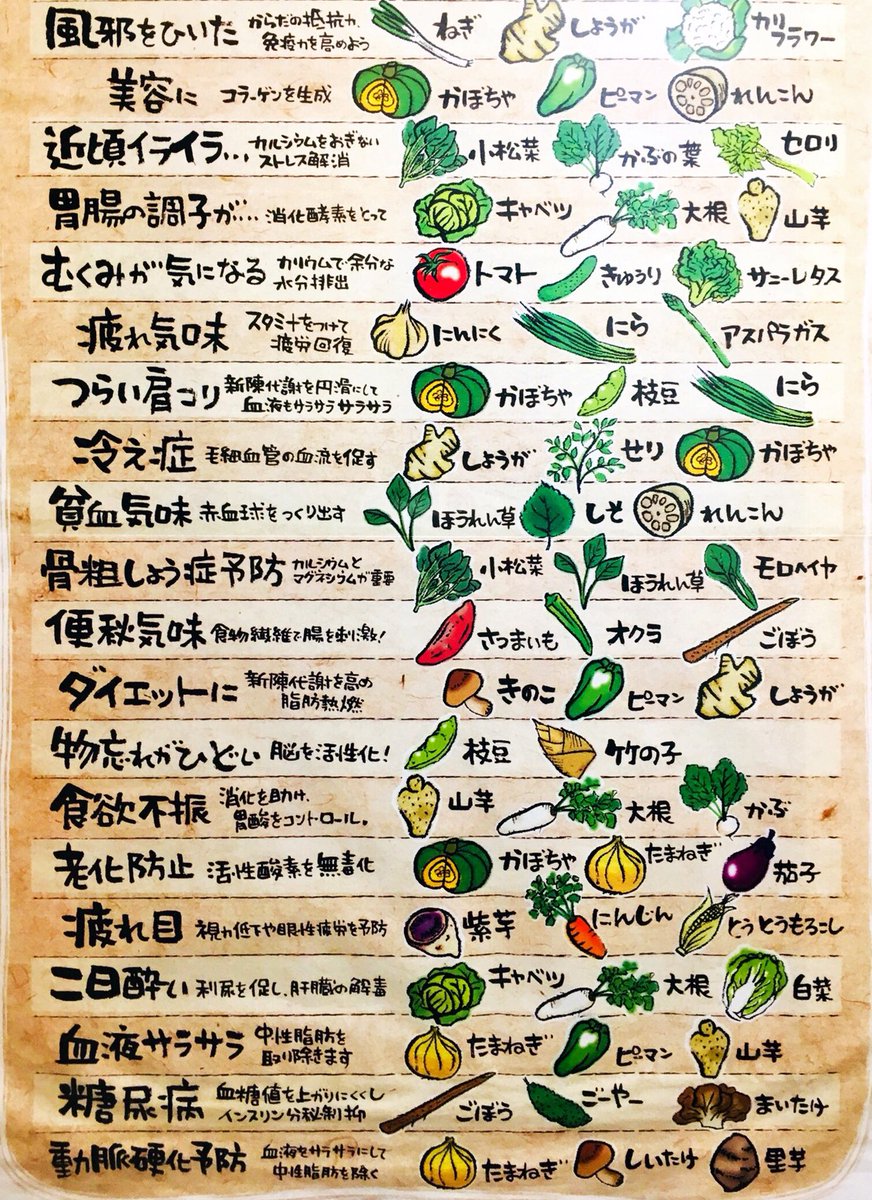 風邪をひいた からだの抵抗力、免疫力を高めよう ねぎ しょうが カリフラワー
美容に コラーゲンを生成 かぼちゃ ピーマン れんこん
近頃イライラ… カルシウムをおぎないストレス解消 小松菜 かぶの葉 セロリ
胃腸の調子が… 消化酵素をとって キャベツ 大根 山芋
むくみが気になる カリウムで余分な水分排出 トマト きゅうり サニーレタス
疲れ気味 スタミナをつけて疲労回復 にんにく にら アスパラガス
つらい肩コリ 新陳代謝を円滑にして血液もサラサラサラサラ かぼちゃ 枝豆 にら
冷え症 毛細血管の血流を促す しょうが せり かぼちゃ
貧血気味 赤血球をつくり出す ほうれん草 しそ れんこん
骨粗しょう症予防 カルシウムとマグネシウムが重要 小松菜 ほうれん草 モロヘイヤ
便秘気味 食物繊維で腸を刺激! さつまいも オクラ ごぼう
ダイエットに 新陳代謝を高め脂肪熱燃 きのこ ピーマン しょうが
物忘れがひどい 脳を活性化! 枝豆 竹の子
食欲不振 消化を助け、胃酸をコントロール。 山芋 大根 かぶ
老化防止 活性酸素を無毒化 かぼちゃ たまねぎ 茄子
疲れ目 視力低下や眼性疲労を予防 紫芋 にんじん とうとうもろこし
二日酔い 利尿を促し、肝臓の解毒 キャベツ 大根 白菜
血液サラサラ 中性脂肪を取り除きます たまねぎ ピーマン 山芋
糖尿病 血糖値を上がりにくくしインスリン分秘制抑 ごぼう ごーやー まいたけ
動脈硬化予防 血液をサラサラにして中性脂肪を除く たまねぎ しいたけ 里芋